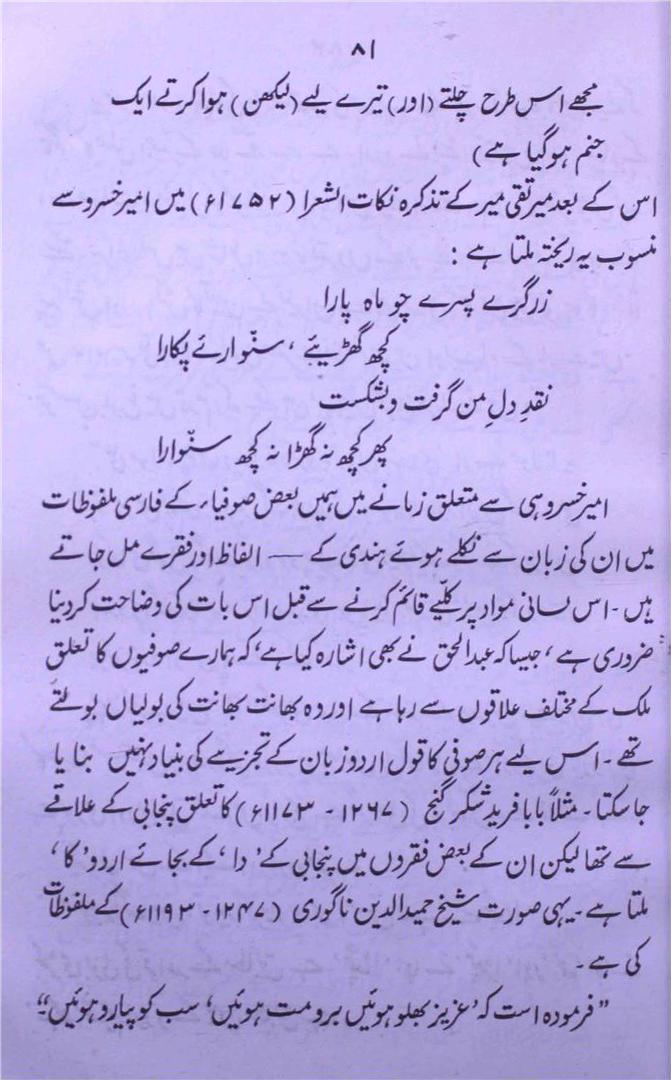 ۸۱
مجھے اس طرح چلتے (اور) تیرے لیے (لیکھن) ہوا کرتے ایک
جنم ہو گیا ہے)
اس کے بعد میر تقی میر کے تذکرہ نکات الشعرا (۱۷۵۲ء) میں امیر خسرو سے
منسوب یہ ریختہ ملتا ہے :
زرگرے پسرے چو ماہ پارا
کچھ گھڑیئے ، سنوّارئے پکارا
نقدِ دلِ من گرفت و بشکست
پھر کچھ نہ گھڑا نہ کچھ سنوّارا
امیر خسرو ہی سے متعلق زمانے میں ہمیں بعض صوفیاء کے فارسی ملفوظات
میں ان کی زبان سے نکلے ہوئے ہندی کے — الفاظ اور فقرے مل جاتے
ہیں ۔ اس لسانی مواد پر کلیے قائم کرنے سے قبل اس بات کی وضاحت کر دینا
ضروری ہے ، جیسا کہ عبدالحق نے بھی اشارہ کیا ہے ، کہ ہمارے صوفیوں کا تعلق
ملک کے مختلف علاقوں سے رہا ہے اور وہ بھانت بھانت کی بولیاں بولتے
تھے ۔ اس لیے ہر صوفی کا قول اردو زبان کے تجزیے کی بنیاد نہیں بنایا
جا سکتا ۔ مثلاً بابا فرید شکر گنج (۱۲۶۷ - ۱۱۷۳ء) کا تعلق پنجابی کے علاقے
سے تھا لیکن ان کے بعض فقروں میں پنجابی کے ’دا‘ ، کے بجائے اردو ’کا‘ ،
ملتا ہے ۔ یہی صورت شیخ حمید الدین ناگوری (۱۲۴۷ - ۱۱۹۳ء) کے ملفوظات
کی ہے ۔
”فرمودہ است کہ ’عزیز بھلو ہوئیں برو مت ہوئیں‘ سب کو پیارو ہوئیں“